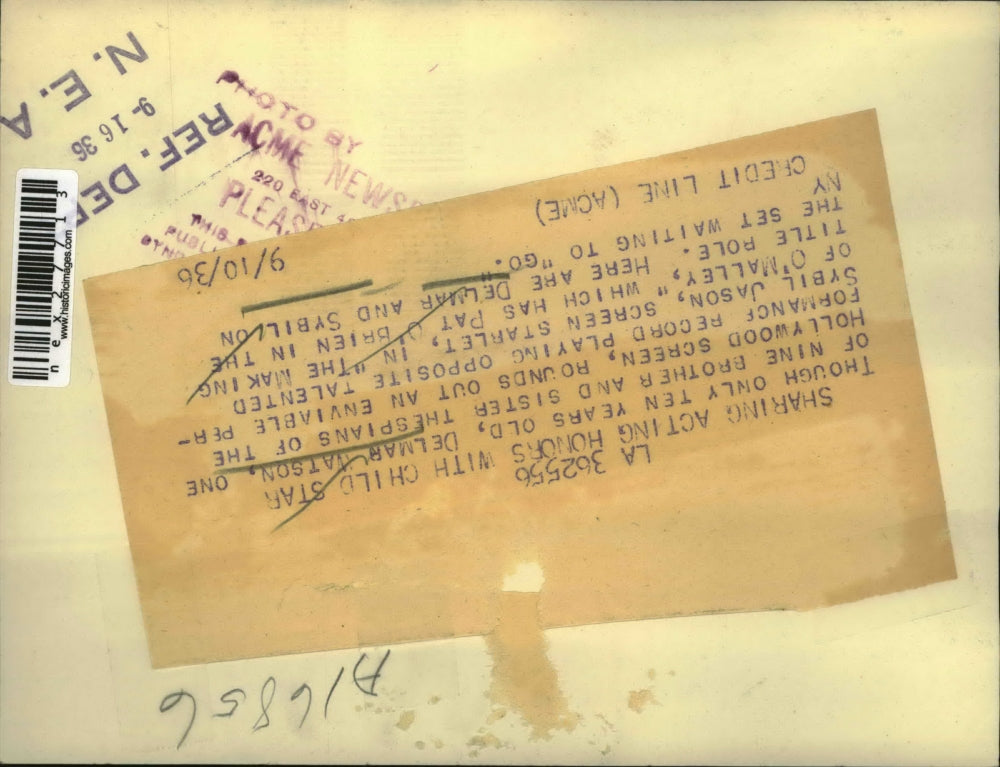 LA 362556
SHARING ACTING HONORS WITH CHILD STAR
THOUGH ONLY TEN YEARS OLD, DELMAR WATSON, ONE
OF NINE BROTHER AND SISTER THESPIANS OF THE
HOLLYWOOD SCREEN, ROUNDS OUT AN ENVIABLE PER-
FORMANCE RECORD PLAYING OPPOSITE TALENTED
SYBIL JASON, SCREEN STARLET, IN "THE MAKING
OF O'MALLEY," WHICH HAS PAT O'BRIEN IN THE
TITLE ROLE. HERE ARE DELMAR AND SYBIL ON
THE SET WAITING TO "GO."
NY
CREDIT LINE (ACME) 9/10/36
A16856
REF. DEP
9-16 36
N. E. A
PHOTO BY
ACME NEWS
220 EAST
PLEAS
THIS
PUBL
SYND
n e x 2 7 7 1 3
www.historicimages.com